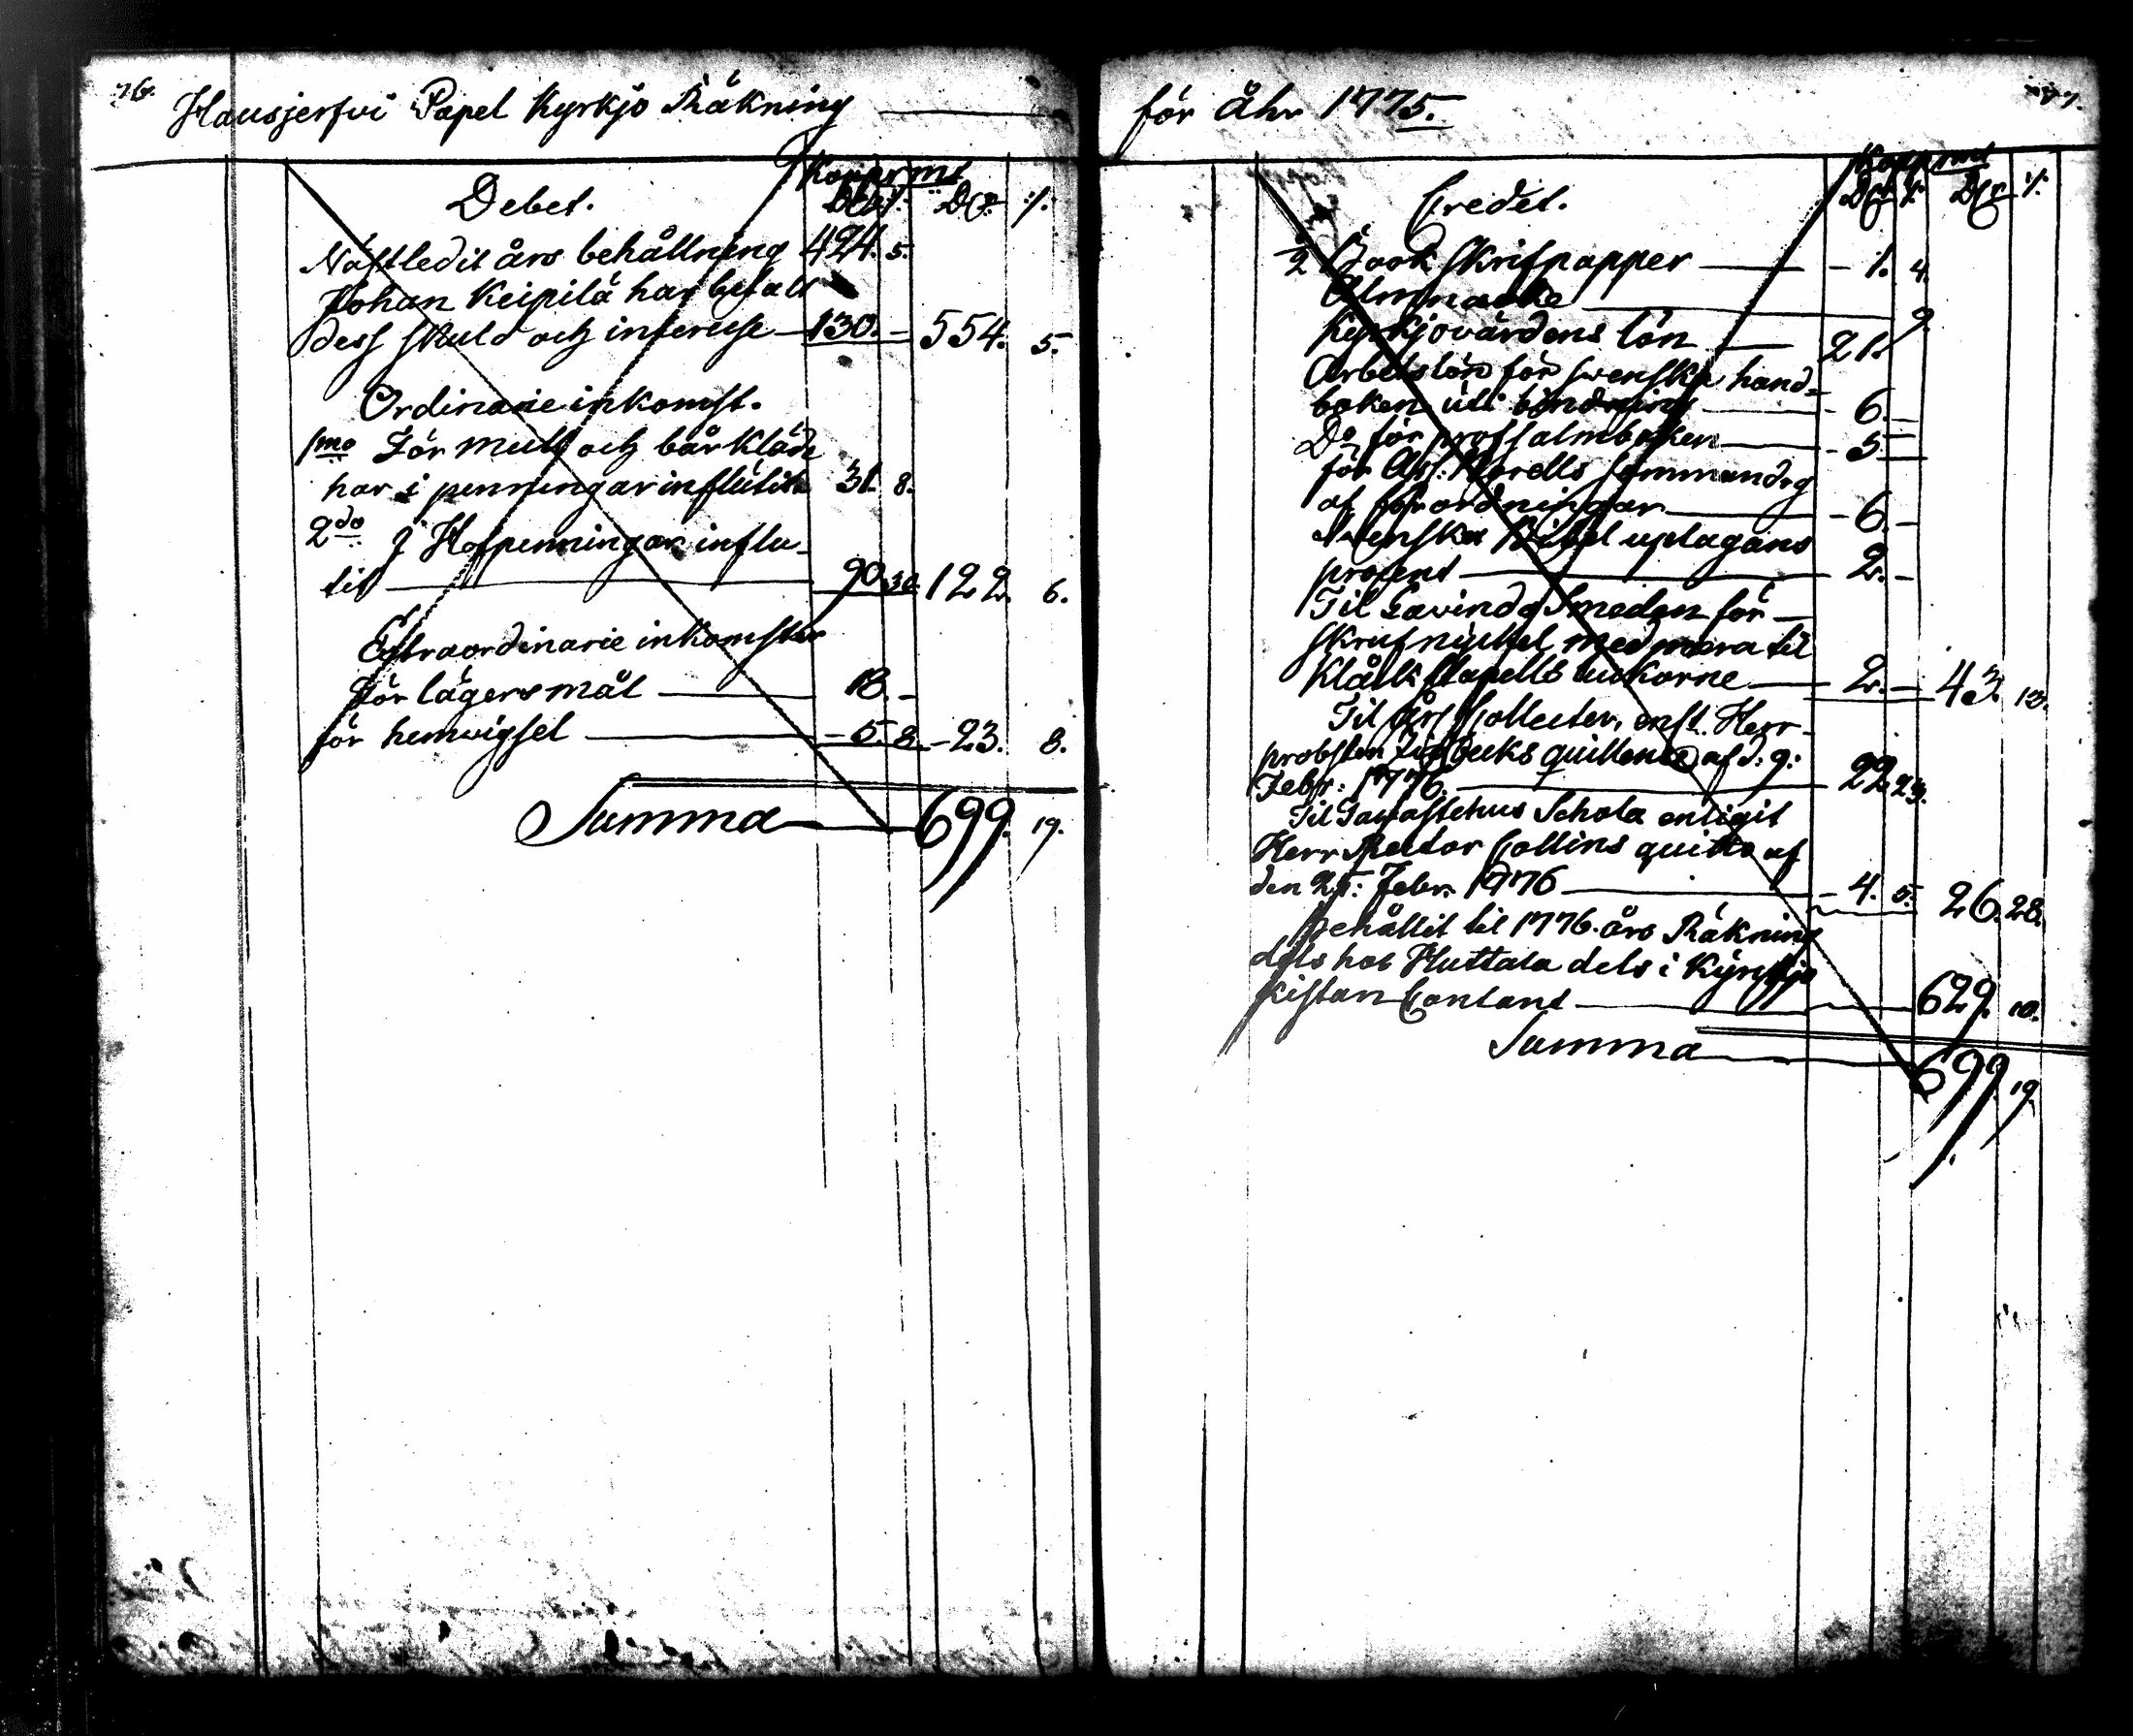 76.
Hausjerfvi Capel Kyrkjo Räkning
Koppr mt
Debet. Dlr :/: Dlr :/:
Nästledit års behållning 424. 5.
Johan Keipilä har betalt
dess skuld och interesse 130. — 554. 5.
Ordinarie inkomst.
1mo För mull och bårkläde
har i penningar influtit 31. 8.
2do I Hofpenningar influ-
tit 90. 30. 122. 6.
Extraordinarie inkomster
För lägersmål 18. —
för hemvigsel — 5. 8. — 23. 8.
Summa 699. 19.
för åhr 1775.
Koppr mt
Credet. Dlr :/: Dlr :/:
1/2 Book Skrifpapper — 1. 4.
Almnacke 9.
Kyrkjovärdens lön 21.
Arbetslön för swenska hand-
boken uti bindning — 6. —
Do för psalmboken — 5. —
för Ass: sammandrg
af förordningar — 6. —
Swenska Bibel uplagans
procent 2. —
Til Smeden för —
skrufnyckel med mera til
Klåck Stapells 2. — 43. 13.
Til Års Collecter, enl. Herr
probsten quittence af d: 9:
Febr: 1776. 22. 23.
Til Tavastehus Schola enligit
Herr Rector Collins quitto af
den 25: Febr. 1776 — 4. 5. 26. 28.
Behållit til 1776. års Räkning
dels hos Huttala dels i Kyrkjo
kistan Contant 629. 10.
Summa 699. 19.